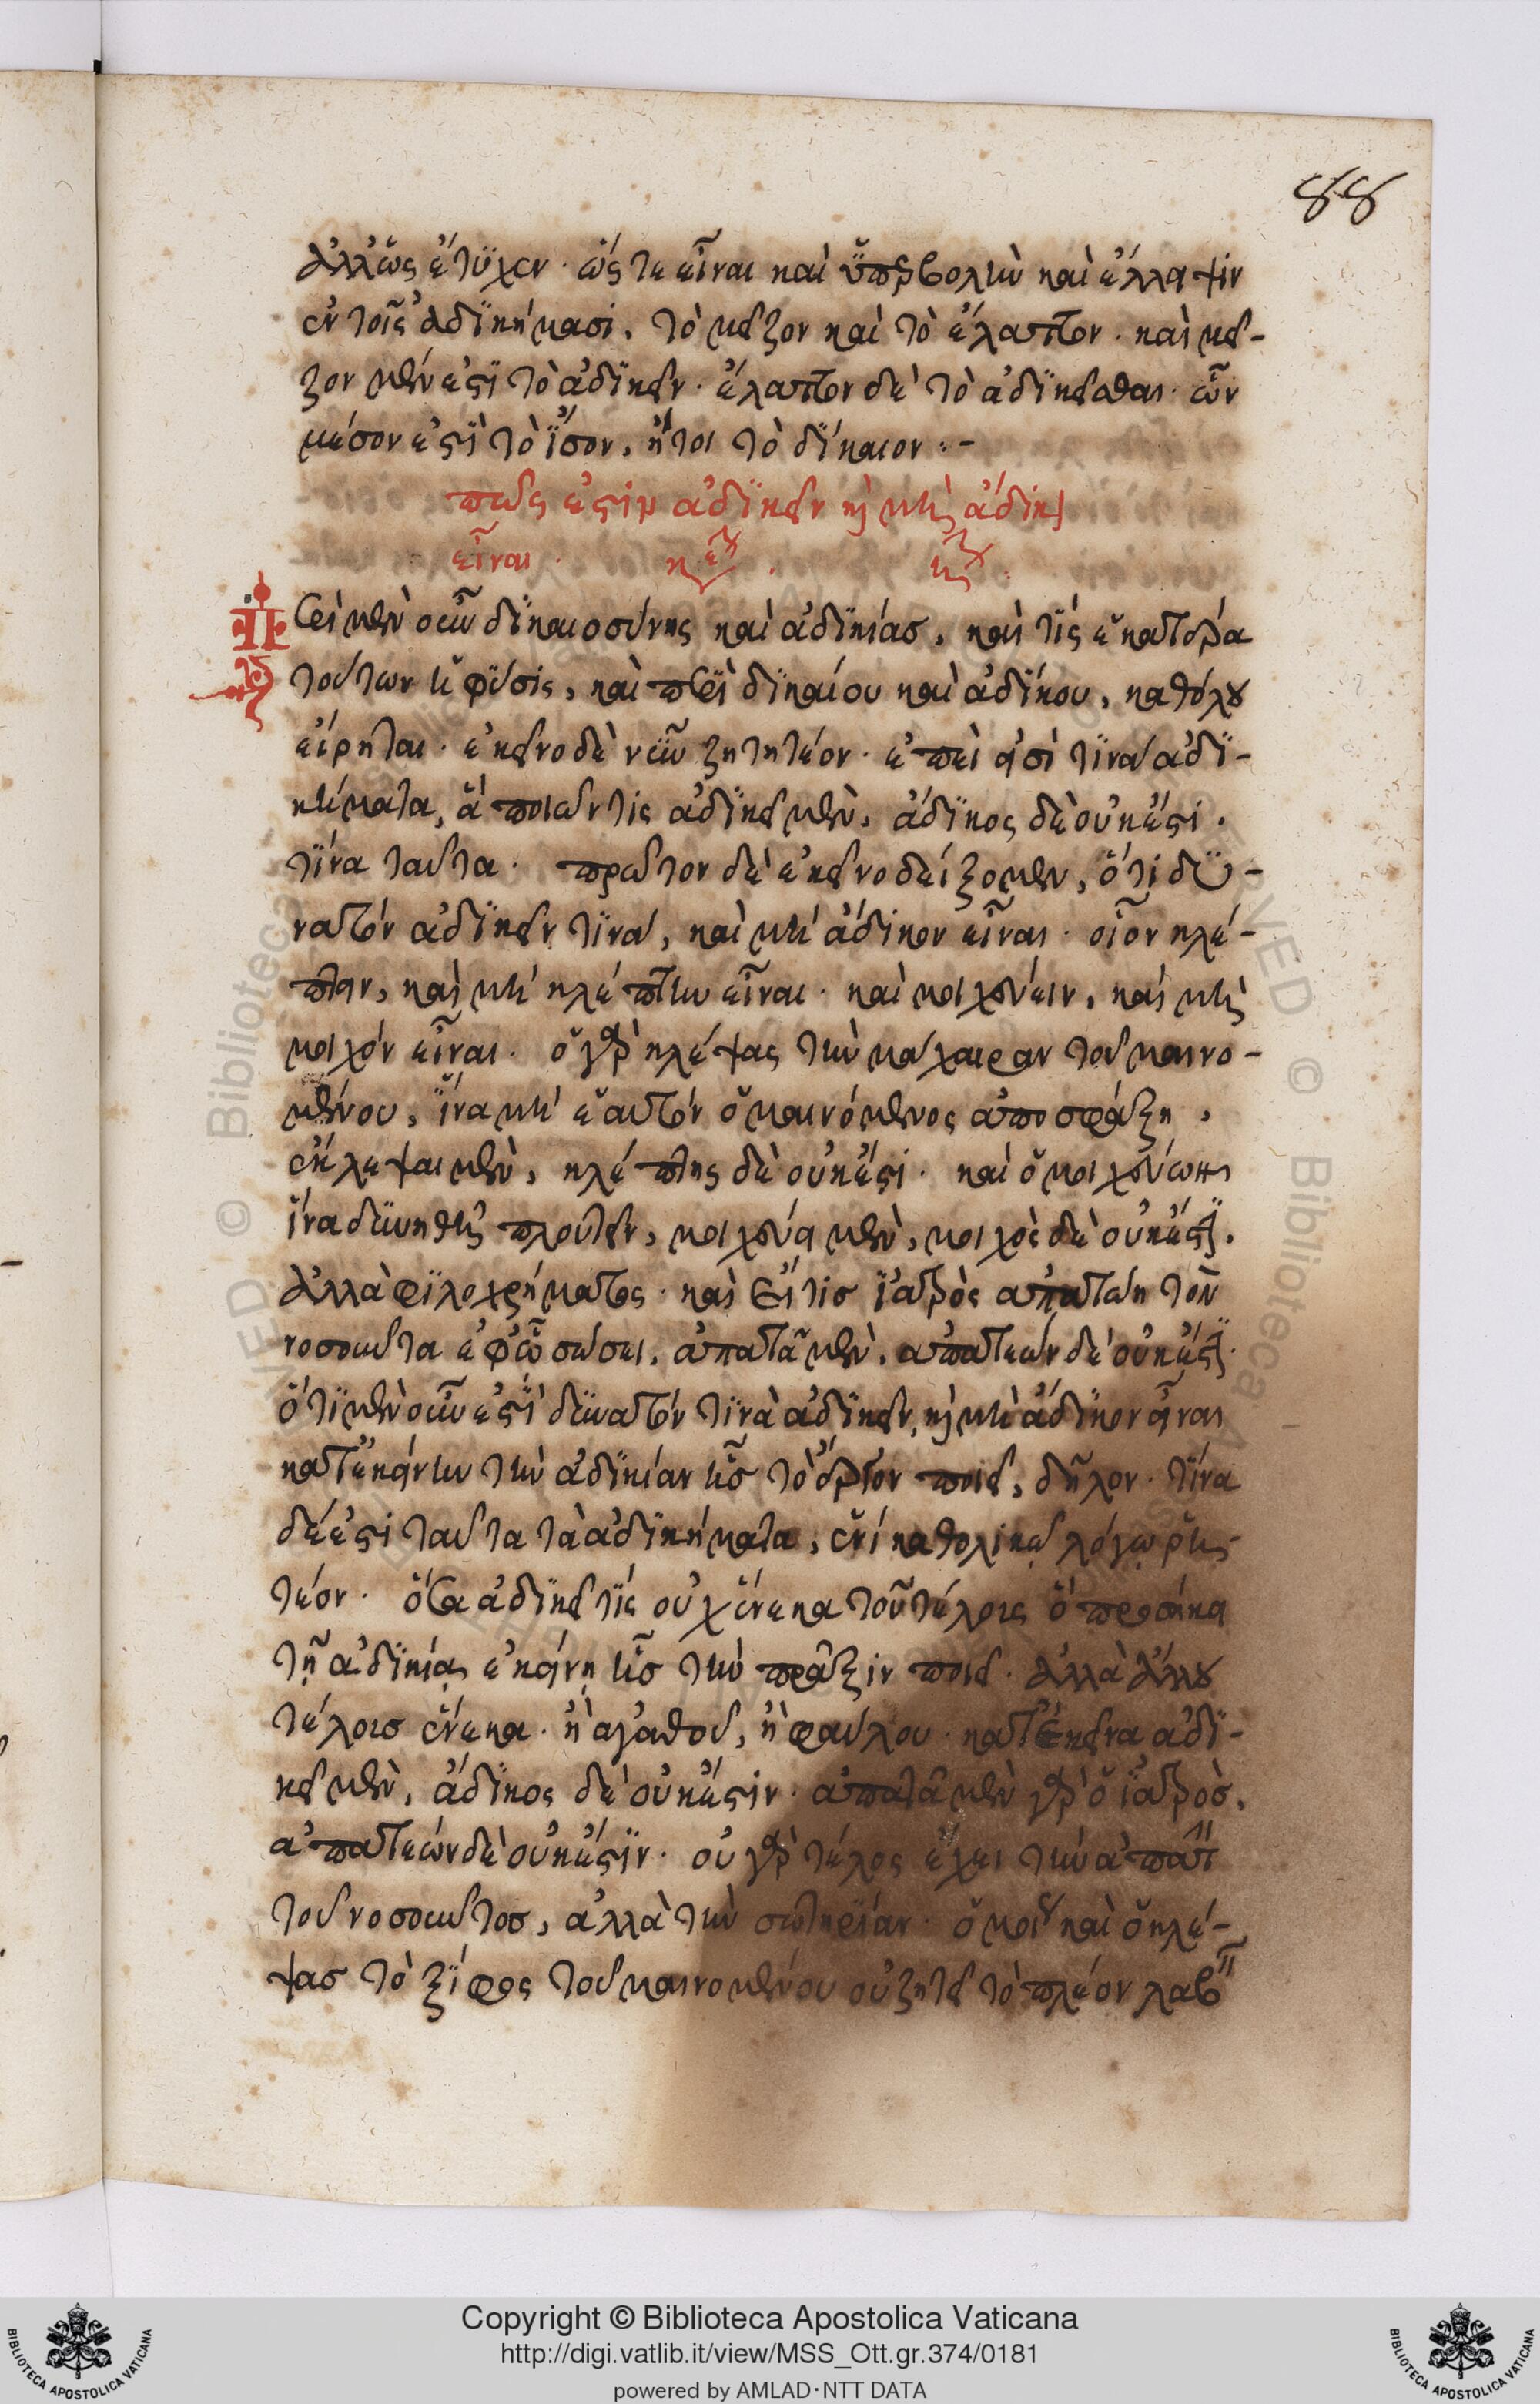 88
ἀλλ' ὡς ἔτυχεν· ὥστε εἶναι καὶ ὑπερβολὴν καὶ ἔλλειψιν
ἐν τοῖς ἀδικήμασι, τὸ μεῖζον καὶ τὸ ἔλαττον· καὶ μεῖ-
ζον μέν ἐστι τὸ ἀδικεῖν· ἔλαττον δὲ τὸ ἀδικεῖσθαι· ὧν
μέσον ἐστὶ τὸ ἴσον, ἤτοι τὸ δίκαιον :-
πῶς ἐστὶν ἀδικεῖν καὶ μὴ ἄδικον
εἶναι.
Περὶ μὲν οὖν δικαιοσύνης καὶ ἀδικίας, καὶ τίς ἑκατέρα
τούτων ἡ φύσις, καὶ περὶ δικαίου καὶ ἀδίκου, καθόλου
εἴρηται· ἐκεῖνο δὲ νῦν ζητητέον· ἐπεὶ εἰσὶ τινὰ ἀδι-
κήματα, ἃ ποιῶν τις ἀδικεῖ μὲν, ἄδικος δὲ οὐκ ἔστι.
τίνα ταῦτα· πρῶτον δὲ ἐκεῖνο δείξομεν, ὅτι δυ-
νατόν ἀδικεῖν τινά, καὶ μή ἄδικον εἶναι· οἷον κλέ-
πτειν, καὶ μή κλέπτην εἶναι· καὶ μοιχεύειν, καὶ μὴ
μοιχόν εἶναι· ὁ γὰρ κλέψας τὴν μάχαιραν τοῦ μαινο-
μένου, ἵνα μή ἑαυτόν ὁ μαινόμενος ἀποσφάξῃ,
ἔκλεψε μὲν, κλέπτης δὲ οὐκ ἔστι· καὶ ὁ μοιχεύων
ἵνα δυνηθῇ πλουτεῖν, μοιχεύει μὲν, μοιχὸς δὲ οὐκ ἔστι.
ἀλλὰ φιλοχρήματος· καὶ εἴ τις ἰατρὸς ἀπατώη τὸν
νοσοῦντα ἐφ' ᾧ σώσει, ἀπατᾷ μὲν, ἀπατεών δὲ οὐκ ἔστι·
ὅτι μὲν οὖν ἐστὶ δυνατόν τινὰ ἀδικεῖν, καὶ μὴ ἄδικον εἶναι
κατ' ἐκείνην τὴν ἀδικίαν ἧς τὸ ἔργον ποιεῖ, δῆλον· τίνα
δέ ἐστι ταῦτα τὰ ἀδικήματα, ἑνί καθολικῷ λόγῳ ῥη-
τέον· ὅσα ἀδικεῖ τίς οὐχ ἕνεκα τοῦ τέλους ὃ προσήκει
τῇ ἀδικίᾳ ἐκείνῃ ἧς τὴν πρᾶξιν ποιεῖ· ἀλλὰ ἄλλου
τέλους ἕνεκα· ἢ ἀγαθοῦ, ἢ φαύλου· κατ' ἐκεῖνα ἀδι-
κεῖ μὲν, ἄδικος δὲ οὐκ ἔστιν· ἀπατᾷ μὲν γὰρ ὁ ἰατρὸς,
ἀπατεών δὲ οὐκ ἔστιν· οὐ γὰρ τέλος ἔχει τὴν ἀπάτην
τοῦ νοσοῦντος, ἀλλὰ τὴν σωτηρίαν· ὁμοίως καὶ ὁ κλέ-
ψας τὸ ξίφος τοῦ μαινομένου οὐ ζητεῖ τὸ πλέον λαβεῖν
Copyright © Biblioteca Apostolica Vaticana
http://digi.vatlib.it/view/MSS_Ott.gr.374/0181
powered by AMLAD·NTT DATA
BIBLIOTECA APOSTOLICA VATICANA
BIBLIOTECA APOSTOLICA VATICANA